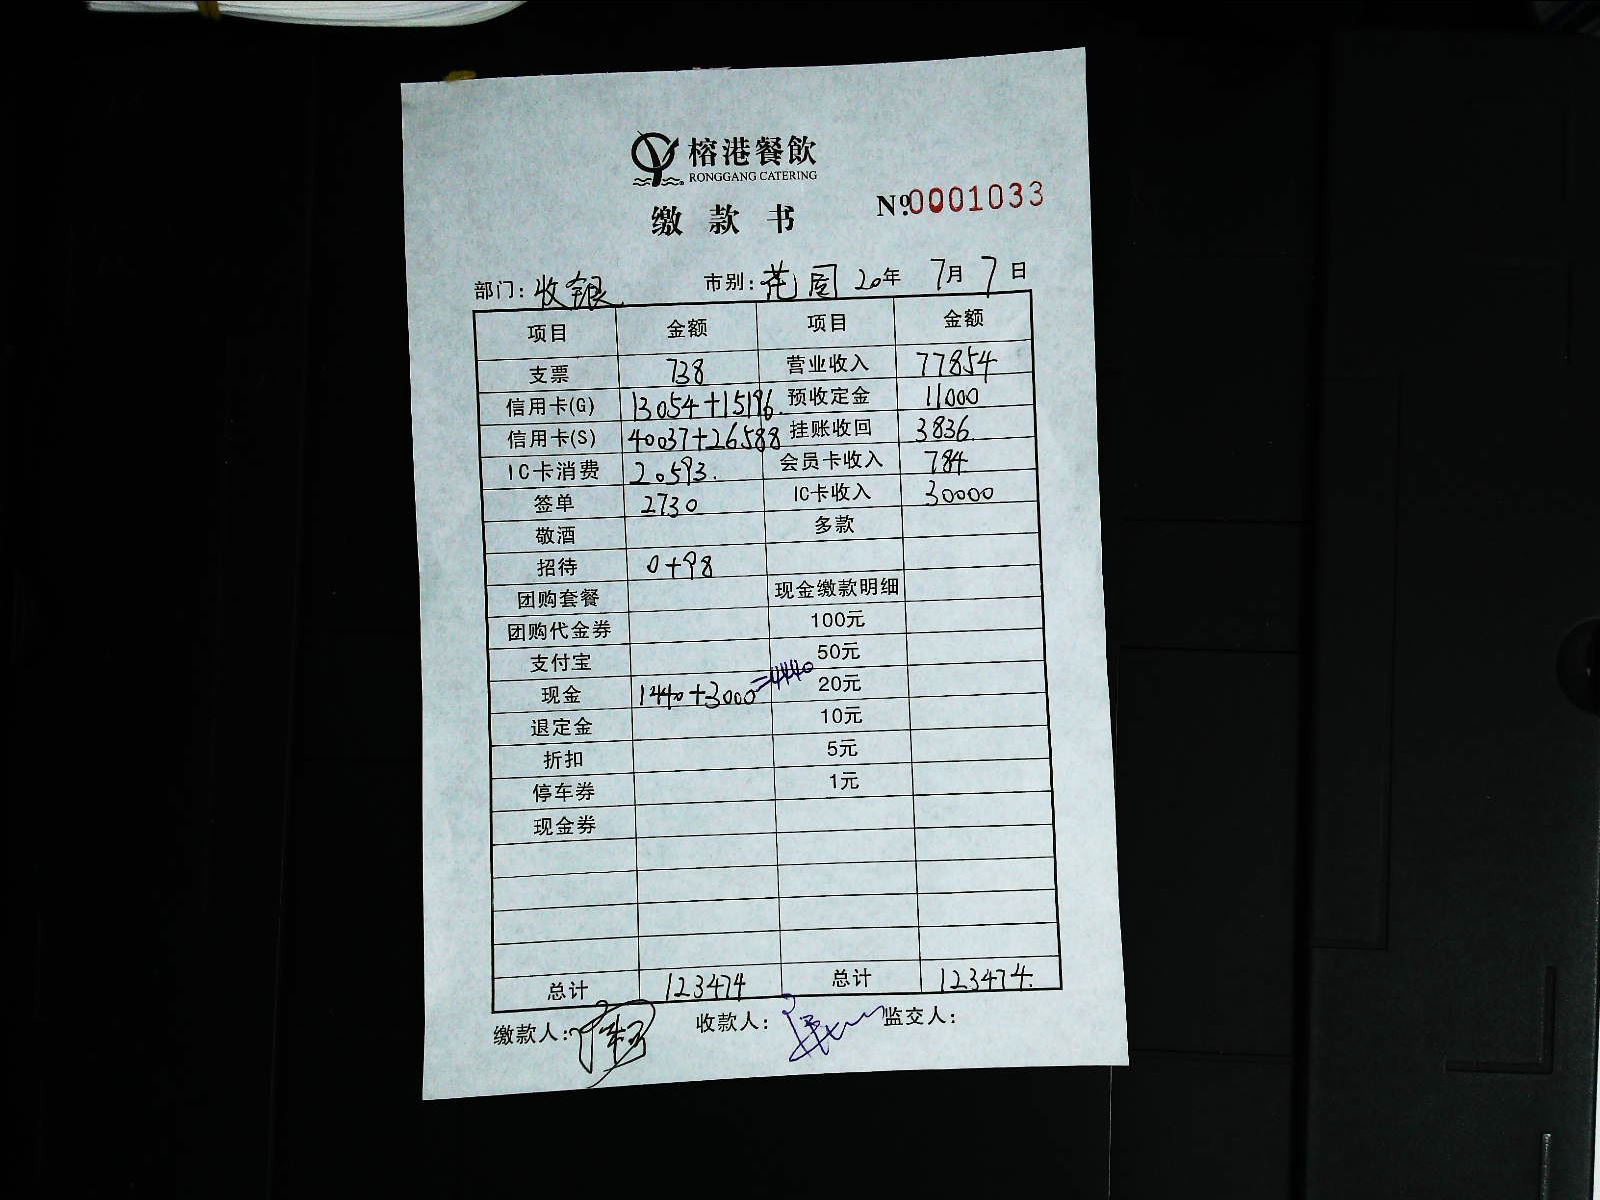 榕港餐飲
RONGGANG CATERING
缴款书 №0001033
部门: 收银 市别: 花园 20年 7月 7日
项目 金额 项目 金额
支票 738 营业收入 77854
信用卡(G) 13054+15196 预收定金 11000
信用卡(S) 40037+26588 挂账收回 3836
IC卡消费 20593. 会员卡收入 784
签单 2730 IC卡收入 30000
敬酒 多款
招待 0+98
团购套餐 现金缴款明细
团购代金券 100元
支付宝 50元
现金 1440+3000=4440 20元
退定金 10元
折扣 5元
停车券 1元
现金券
总计 123474 总计 123474.
缴款人: 收款人: 监交人: